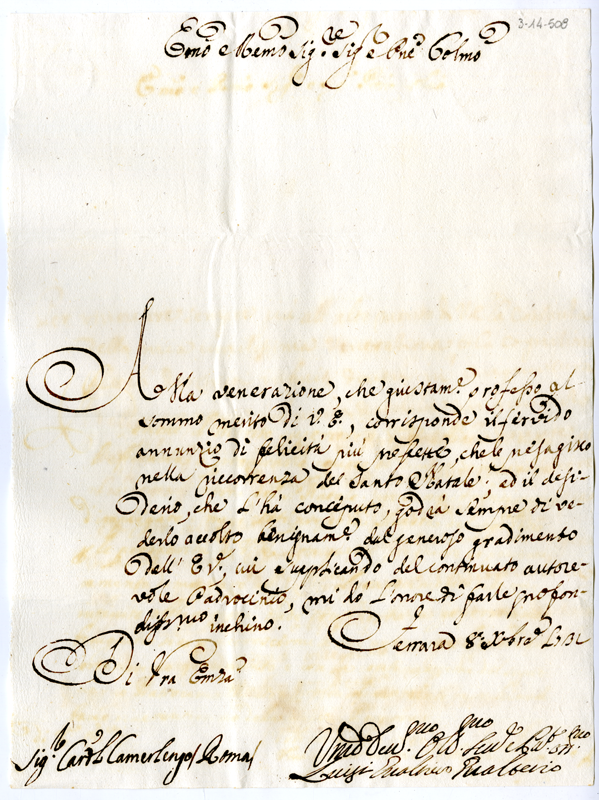 3-14-508
Emo e Rmo Sig.re Sig.e e Pne Colmo
Alla venerazione, che giustam.e professo al
sommo merito di V. E., corrisponde il fervido
annunzio di felicità più perfette, che le presagisco
nella ricorrenza del Santo Natale: ed il desi-
derio, che l'hà conceputo, godrà sempre di ve-
derlo accolto benignam.e dal generoso gradimento
dell' E.V., cui supplicando del continuato autore-
vole Padrocinio, mi dò l'onore di farle profon-
dissimo inchino. Ferrara 8 Xbre
Di Vra Emza
Sig.r Card.l Camerlengo Roma
Umo Devmo Oblmo Serv.e
Luigi